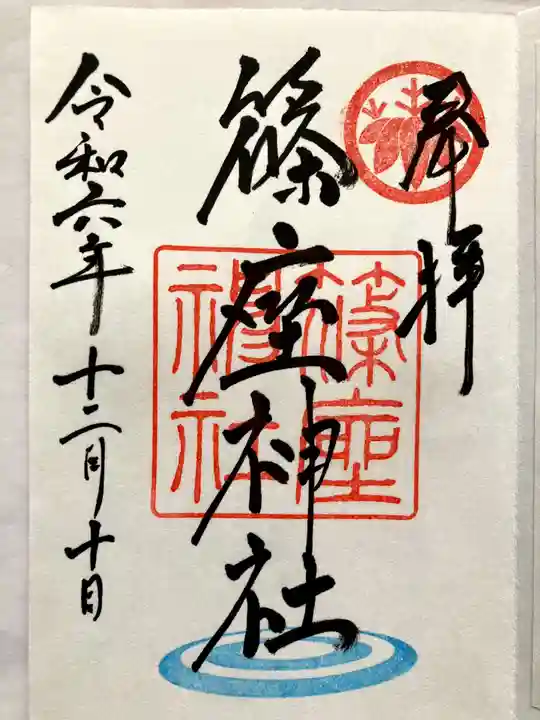 奉拝
篠座神社
篠座神社
令和六年十二月十日